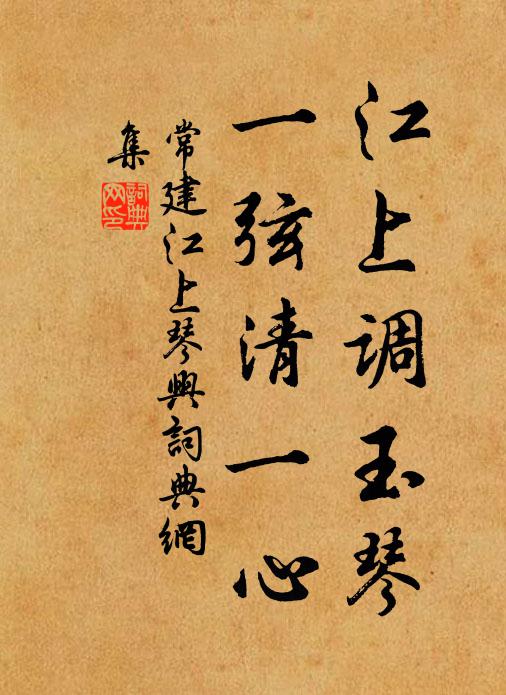 江上调玉琴
一弦清一心
常建江上琴興詞典網
集
詞典网印